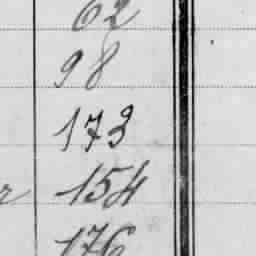 62
98
173
r 154
176